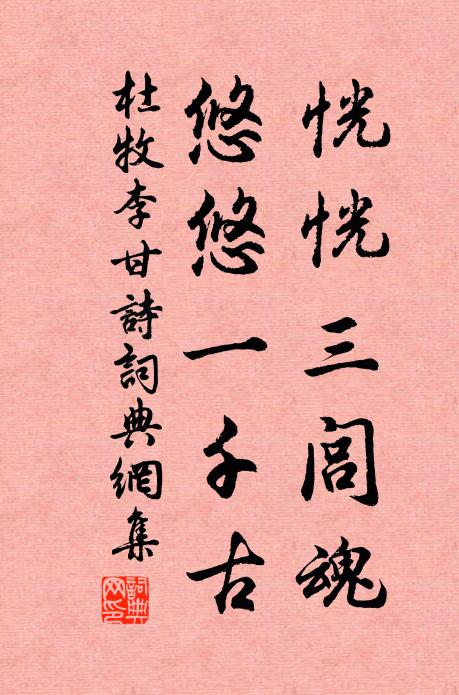 恍恍三閭魂
悠悠一千古
杜牧李甘詩詞典網集
詞典网印